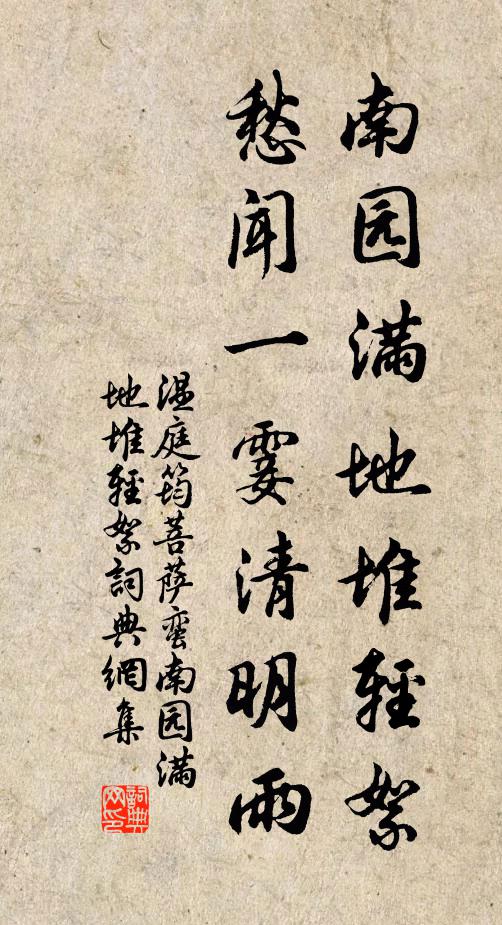 南园满地堆轻絮
愁闻一霎清明雨
温庭筠菩萨蛮南园满
地堆轻絮词典網集
詞典
网印